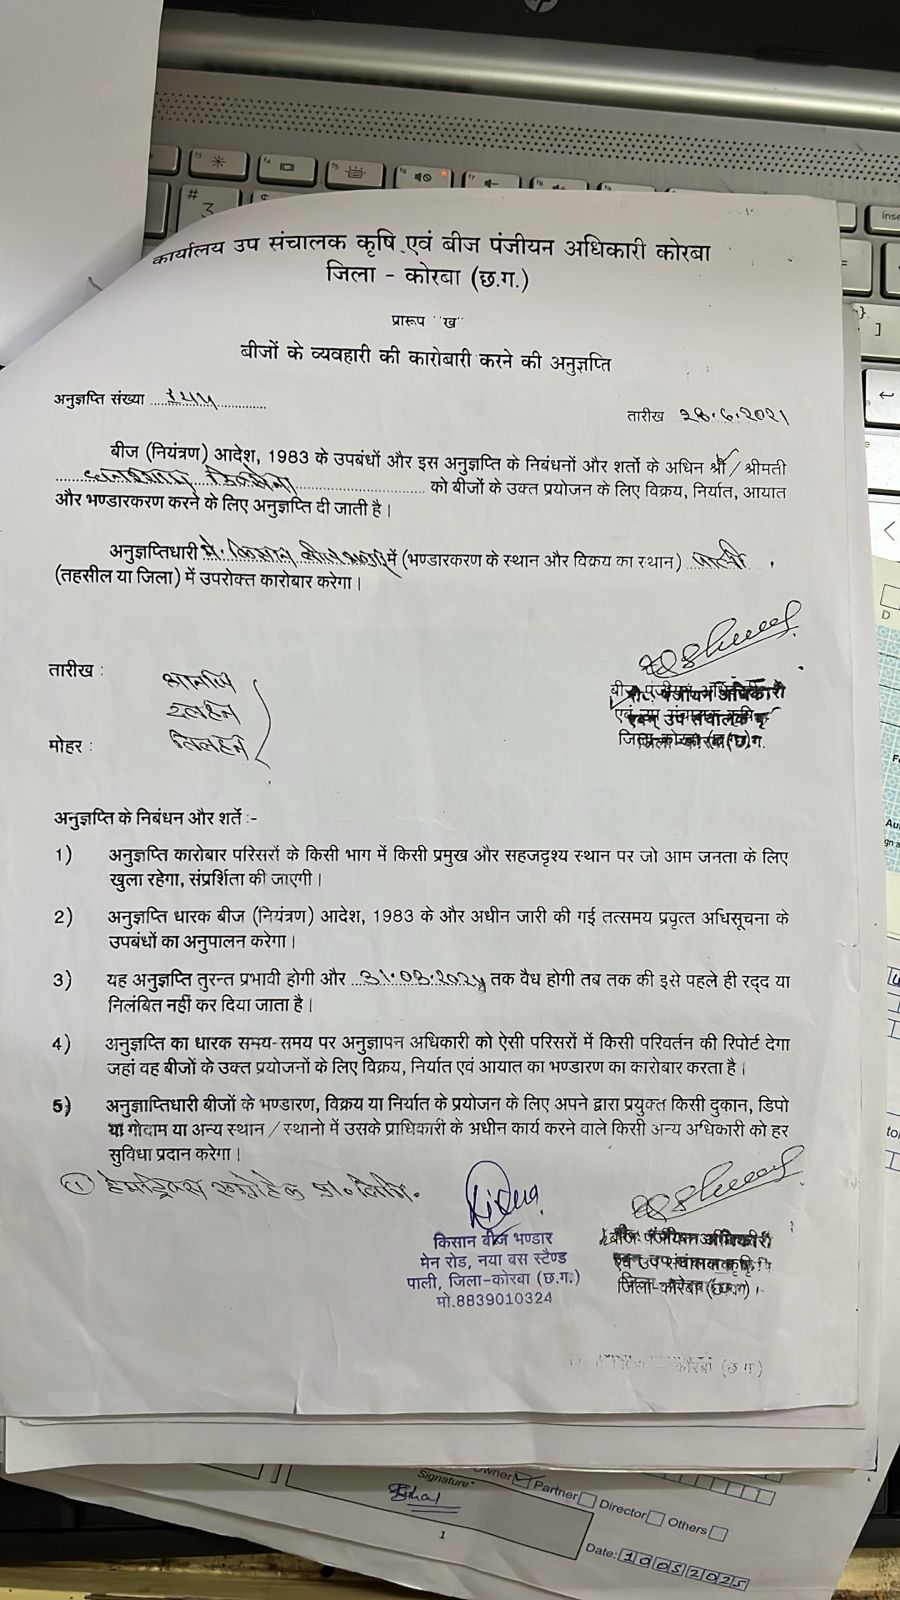 कार्यालय उप संचालक कृषि एवं बीज पंजीयन अधिकारी कोरबा
जिला - कोरबा (छ.ग.)
प्रारूप "ख"
बीजों के व्यवहारी की कारोबारी करने की अनुज्ञप्ति
अनुज्ञप्ति संख्या
तारीख 28.6.2021
बीज (नियंत्रण) आदेश, 1983 के उपबंधों और इस अनुज्ञप्ति के निबंधनों और शर्तो के अधिन श्री / श्रीमती
को बीजों के उक्त प्रयोजन के लिए विक्रय, निर्यात, आयात
और भण्डारकरण करने के लिए अनुज्ञप्ति दी जाती है।
अनुज्ञप्तिधारी मे. किसान बीज भण्डार में (भण्डारकरण के स्थान और विक्रय का स्थान) पाली
(तहसील या जिला) में उपरोक्त कारोबार करेगा।
तारीख :
मोहर :
दलहन
तिलहन
बीज पंजीयन अधिकारी
एवं उप संचालक कृषि
जिला-कोरबा (छ.ग.)
अनुज्ञप्ति के निबंधन और शर्ते :-
1) अनुज्ञप्ति कारोबार परिसरों के किसी भाग में किसी प्रमुख और सहजदृश्य स्थान पर जो आम जनता के लिए
खुला रहेगा, संप्रर्शिता की जाएगी।
2) अनुज्ञप्ति धारक बीज (नियंत्रण) आदेश, 1983 के और अधीन जारी की गई तत्समय प्रवृत्त अधिसूचना के
उपबंधों का अनुपालन करेगा।
3) यह अनुज्ञप्ति तुरन्त प्रभावी होगी और तक वैध होगी तब तक की इसे पहले ही रद्द या
निलंबित नहीं कर दिया जाता है।
4) अनुज्ञप्ति का धारक समय-समय पर अनुज्ञापन अधिकारी को ऐसी परिसरों में किसी परिवर्तन की रिपोर्ट देगा
जहां वह बीजों के उक्त प्रयोजनों के लिए विक्रय, निर्यात एवं आयात का भण्डारण का कारोबार करता है।
5) अनुज्ञाप्तिधारी बीजों के भण्डारण, विक्रय या निर्यात के प्रयोजन के लिए अपने द्वारा प्रयुक्त किसी दुकान, डिपो
या गोदाम या अन्य स्थान / स्थानो में उसके प्राधिकारी के अधीन कार्य करने वाले किसी अन्य अधिकारी को हर
सुविधा प्रदान करेगा।
किसान बीज भण्डार
मेन रोड, नया बस स्टैण्ड
पाली, जिला-कोरबा (छ.ग.)
मो.8839010324
बीज पंजीयन अधिकारी
एवं उप संचालक कृषि
जिला-कोरबा (छ.ग)
कोरबा (छ ग)
Signature*
Owner Partner Director Others
1
Date: 10052025